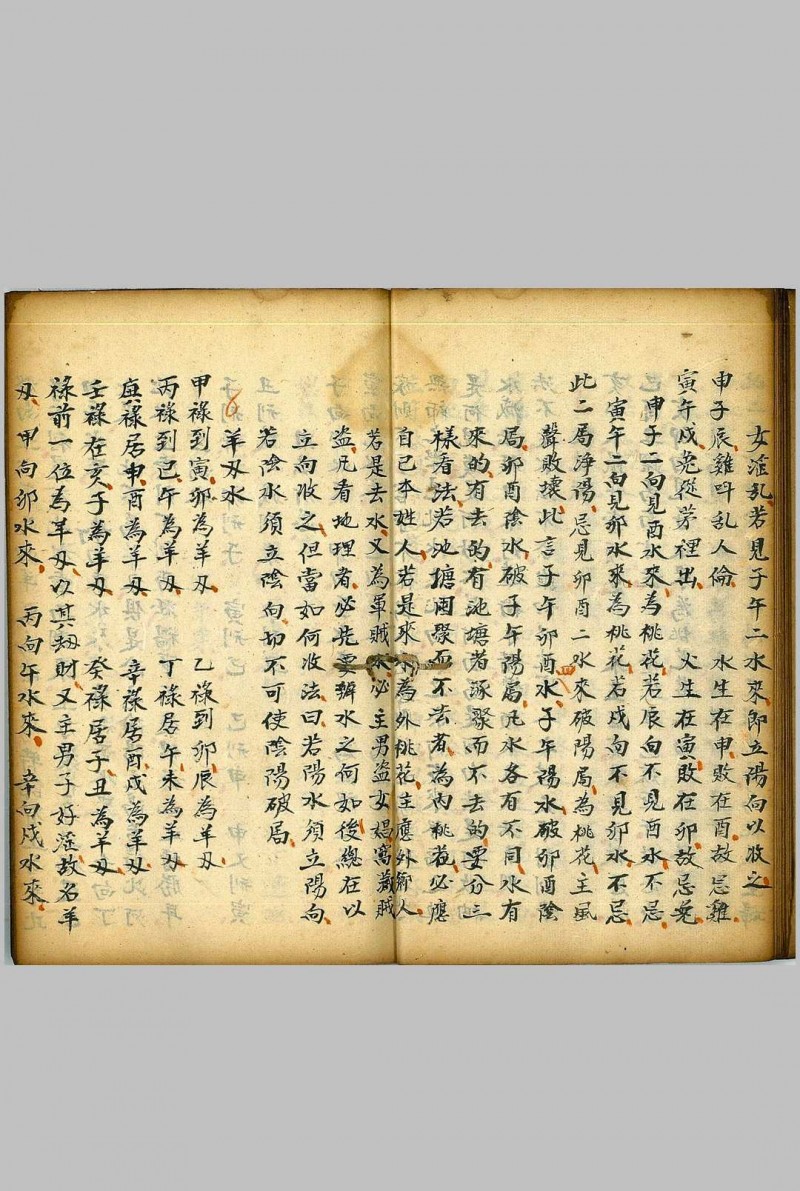 女淫乱若見子午二水來即立陽向以收之
申子辰雞呌乱人倫　水生在申敗在酉故忌雞
寅午戌兎從茅裡出　火生在寅敗在卯故忌兎
申子二向見酉水來為桃花若辰向不見酉水不忌
寅午二向見卯水來為桃花若戌向不見卯水不忌
此二局淨陽忌見卯酉二水來破陽局為桃花主風
聲敗壞此言子午卯酉水子午陽水破卯酉陰
局卯酉陰水破子午陽局凡水各有不同水有
來的有去的有池塘者深聚而不去的要分三
樣看法若池塘囤聚而不去者為內桃花必應
自己本姓人若是來水為外桃花主應外鄉人
若是去水又為軍賊水必主男盗女娼窩藏賊
盗凡看地理者必先要辦水之何如後總在以
立向收之但當如何收法曰若陽水須立陽向
若陰水須立陰向切不可使陰陽破局
羊刃水
甲祿到寅卯為羊刃　乙祿到卯辰為羊刃
丙祿到巳午為羊刃　丁祿居午未為羊刃
庚祿居申酉為羊刃　辛祿居酉戌為羊刃
壬祿在亥子為羊刃　癸祿居子丑為羊刃
祿前一位為羊刃以其刼財又主男子好淫故名羊
刃　甲向卯水來　丙向午水來　辛向戌水來